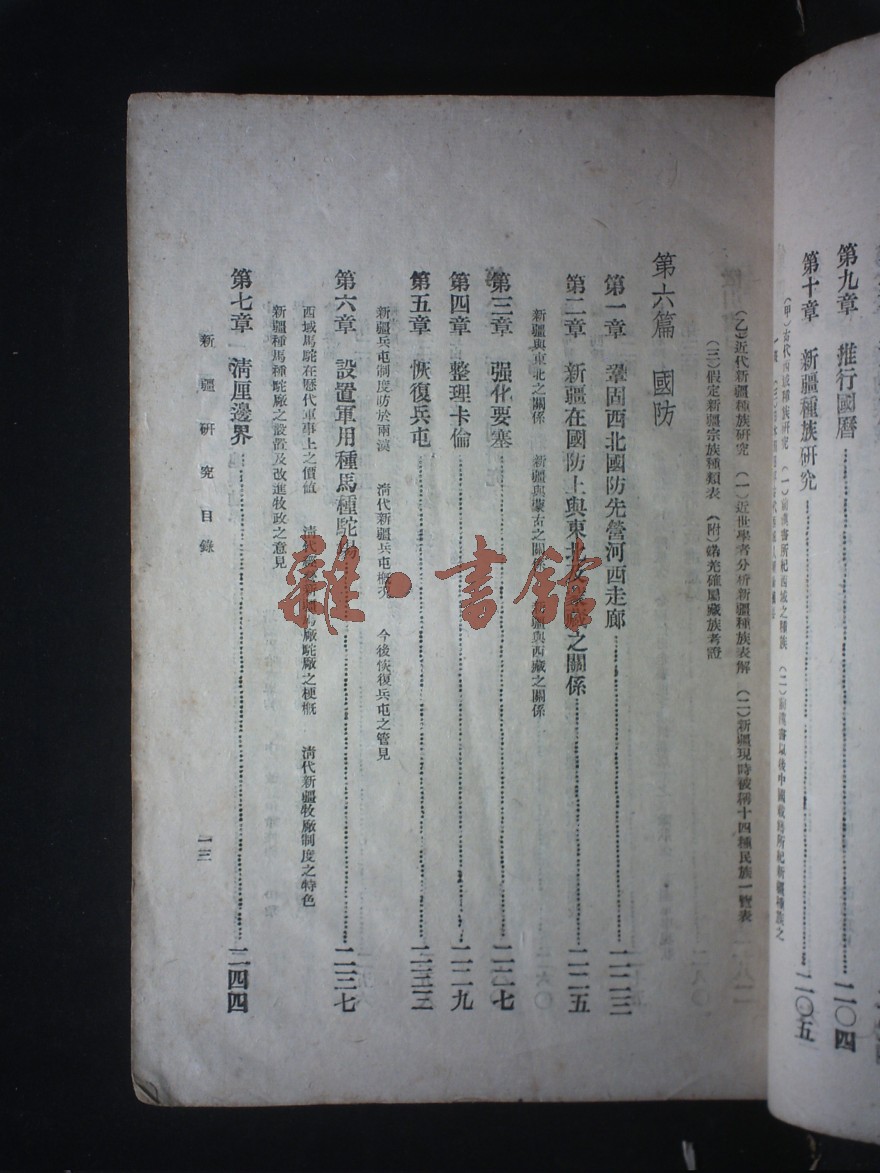 第九章 推行國曆 二〇四
第十章 新疆種族研究 二〇五
(甲)古代西域種族研究 (一)前漢書所紀西域之種族 (二)前漢書以後中國載籍所紀新疆種族之
(乙)近代新疆種族研究 (一)近世學者分析新疆種族表解 (二)新疆現時被稱十四種民族一覽表
(三)假定新疆宗族種類表 (附)婼羌確屬藏族考證
第六篇 國防
第一章 鞏固西北國防先營河西走廊 二二三
第二章 新疆在國防上與東北及蒙藏之關係 二二五
新疆與東北之關係 新疆與蒙古之關係 新疆與西藏之關係
第三章 强化要塞 二二七
第四章 整理卡倫 二二九
第五章 恢復兵屯 二三三
新疆兵屯制度昉於兩漢 清代新疆兵屯概況 今後恢復兵屯之管見
第六章 設置軍用種馬種駝場 二三七
西域馬駝在歷代軍事上之價値 清代 馬廠駝廠之梗概 清代新疆牧廠制度之特色
新疆種馬種駝廠之設置及改進牧政之意見
第七章 清厘邊界 二四四
新疆研究目錄
一三
雜·書館